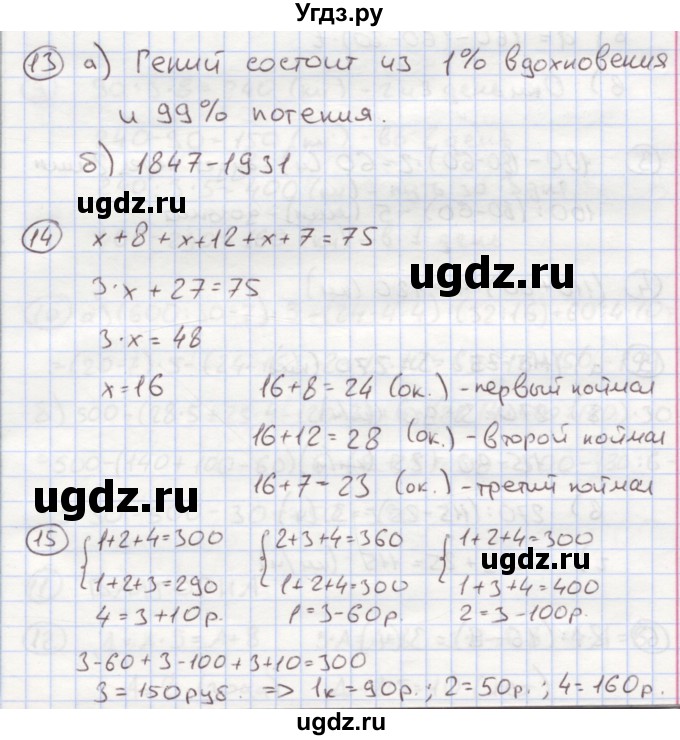 Угдз.ру
13 а) Гений состоит из 1% вдохновения
и 99% потения.
б) 1847-1931
ugdz.ru
14 х+8+х+12+х+7=75
ugdz.ru
3·х+27=75
3·х=48
х=16 16+8=24 (ок.) -первый поймал
16+12=28 (ок.) -второй поймал
ugdz.ru
16+7=23 (ок.) -третий поймал
15 {1+2+4=300 {2+3+4=360 {1+2+4=300
ugdz.ru
1+2+3=290 1+2+4=300 1+3+4=400
4=3+10р. 1=3-60р. 2=3-100р.
3-60+3-100+3+10=300
3=150руб. => 1к=90р.; 2=50р.; 4=160р.
ugdz.ru